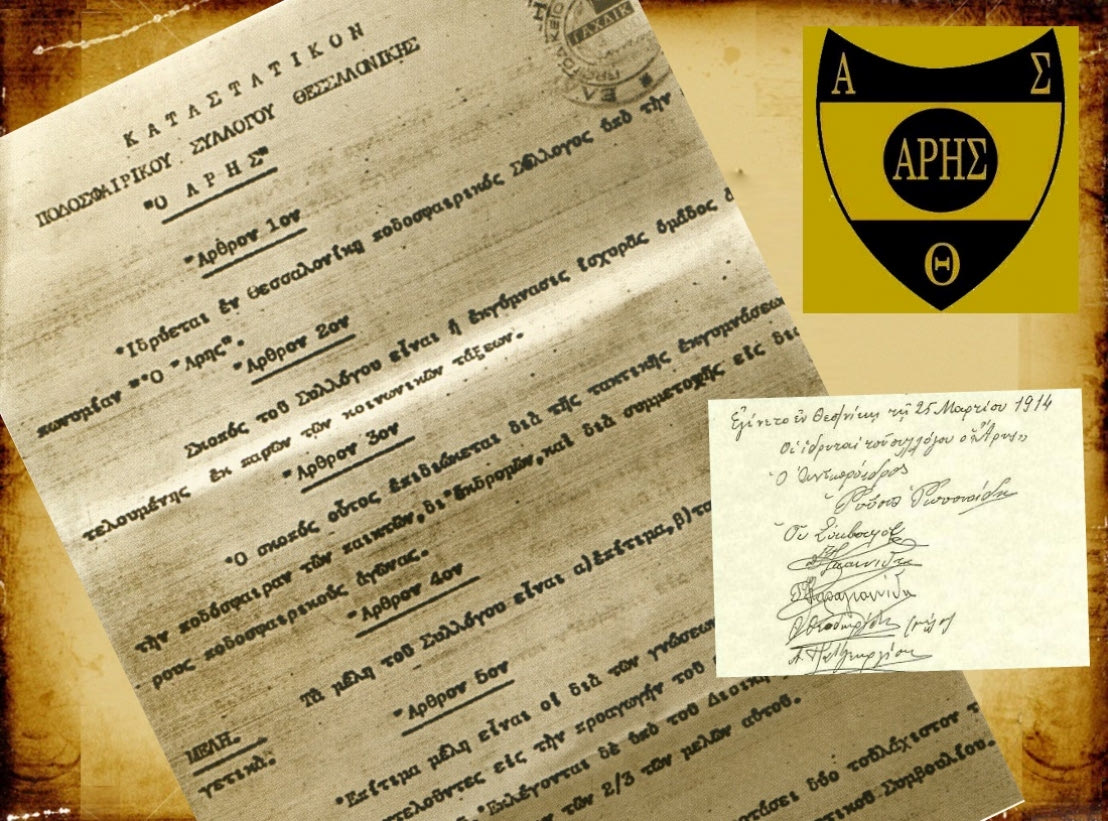 ΚΑΤΑΣΤΑΤΙΚΟΝ
ΠΟΔΟΣΦΑΙΡΙΚΟΥ ΣΥΛΛΟΓΟΥ ΘΕΣΣΑΛΟΝΙΚΗΣ
"Ο ΑΡΗΣ"
"Αρθρον 1ον
"Ιδρύεται ἐν Θεσσαλονίκῃ ποδοσφαιρικός Σύλλογος ὑπό τήν
πωνυμίαν ""Ο "Αρης".
"Αρθρον 2ον
Σκοπός τοῦ Συλλόγου εἶναι ἡ ἐκγύμνασις ἰσχυρᾶς ὁμάδος
τελουμένης ἐκ παρῶν τῶν κοινωνικῶν τάξεων.
"Αρθρον 3ον
"Ο σκοπός οὗτος ἐπιδιώκεται διά τῆς τακτικῆς ἐκγυμνάσεω
τήν ποδόσφαιραν τῶν παικτῶν, δι"ἐκδρομῶν, καί διά συμμετοχῆς εἰς δια
ρους ποδοσφαιρικούς ἀγῶνας.
"Αρθρον 4ον
Τά μέλη τοῦ Συλλόγου εἶναι α)ἐπίτιμα, β)τα
"Αρθρον 5ον
ΜΕΛΗ.
γετικά.
"Επίτιμα μέλη εἶναι οἱ διά τῶν γνώσεων
ντελοῦντες εἰς τήν προαγωγήν τοῦ
"Εκλέγονται δέ ὑπό τοῦ Διοικη
τῶν 2/3 τῶν μελῶν αὐτοῦ.
δύο τοὐλάχιστον
τικοῦ Συμβουλίου.
Α Σ
ΑΡΗΣ
Θ
Ἐγένετο ἐν Θεσ/νίκῃ τῇ 25 Μαρτίου 1914
Οἱ ἱδρυταί τοῦ συλλόγου ὁ Ἄρης
Ὁ Ἀντιπρόεδρος